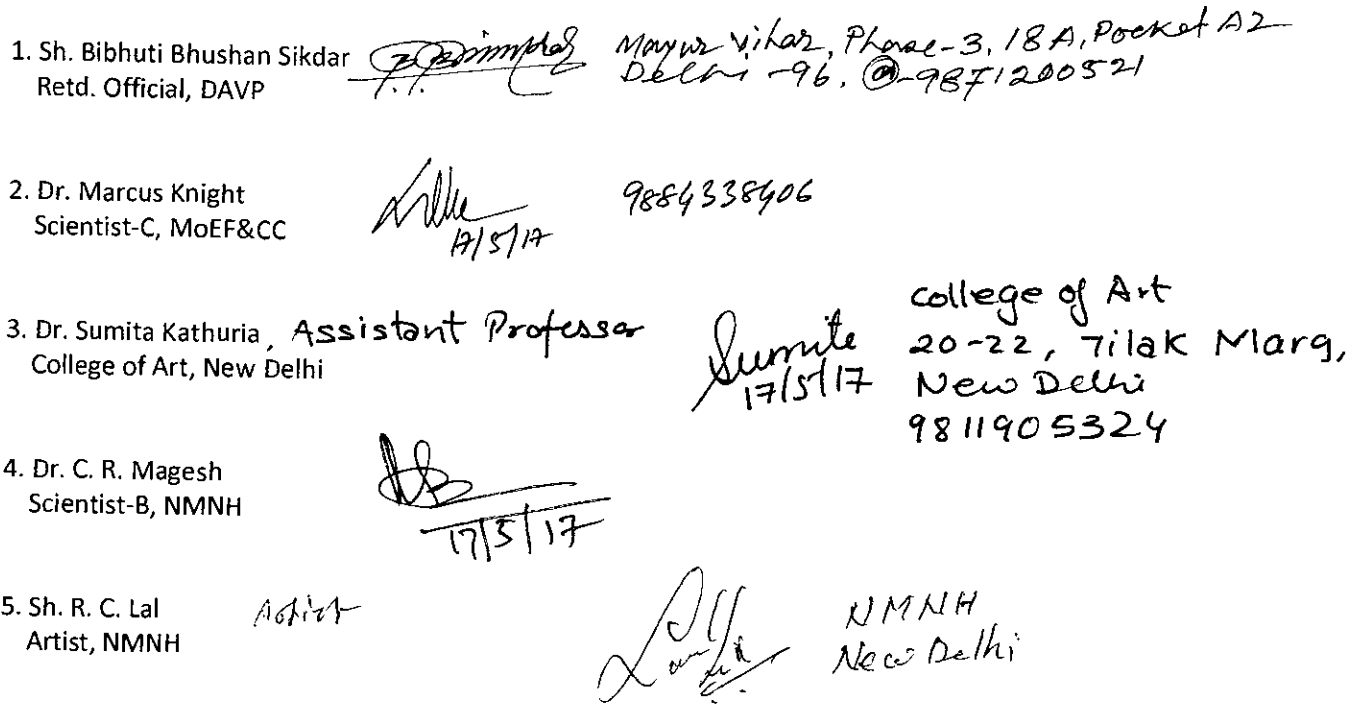 1. Sh. Bibhuti Bhushan Sikdar Mayur Vihar, Phase-3, 18A, Pocket A2
Retd. Official, DAVP Delhi -96. @-9871200521
2. Dr. Marcus Knight 9884338406
Scientist-C, MoEF&CC
17/5/17
3. Dr. Sumita Kathuria, Assistant Professor
College of Art, New Delhi
Sumite
17/5/17
college of Art
20-22, Tilak Marg,
New Delhi
9811905324
4. Dr. C. R. Magesh
Scientist-B, NMNH
17/5/17
5. Sh. R. C. Lal Artist NMNH
Artist, NMNH New Delhi